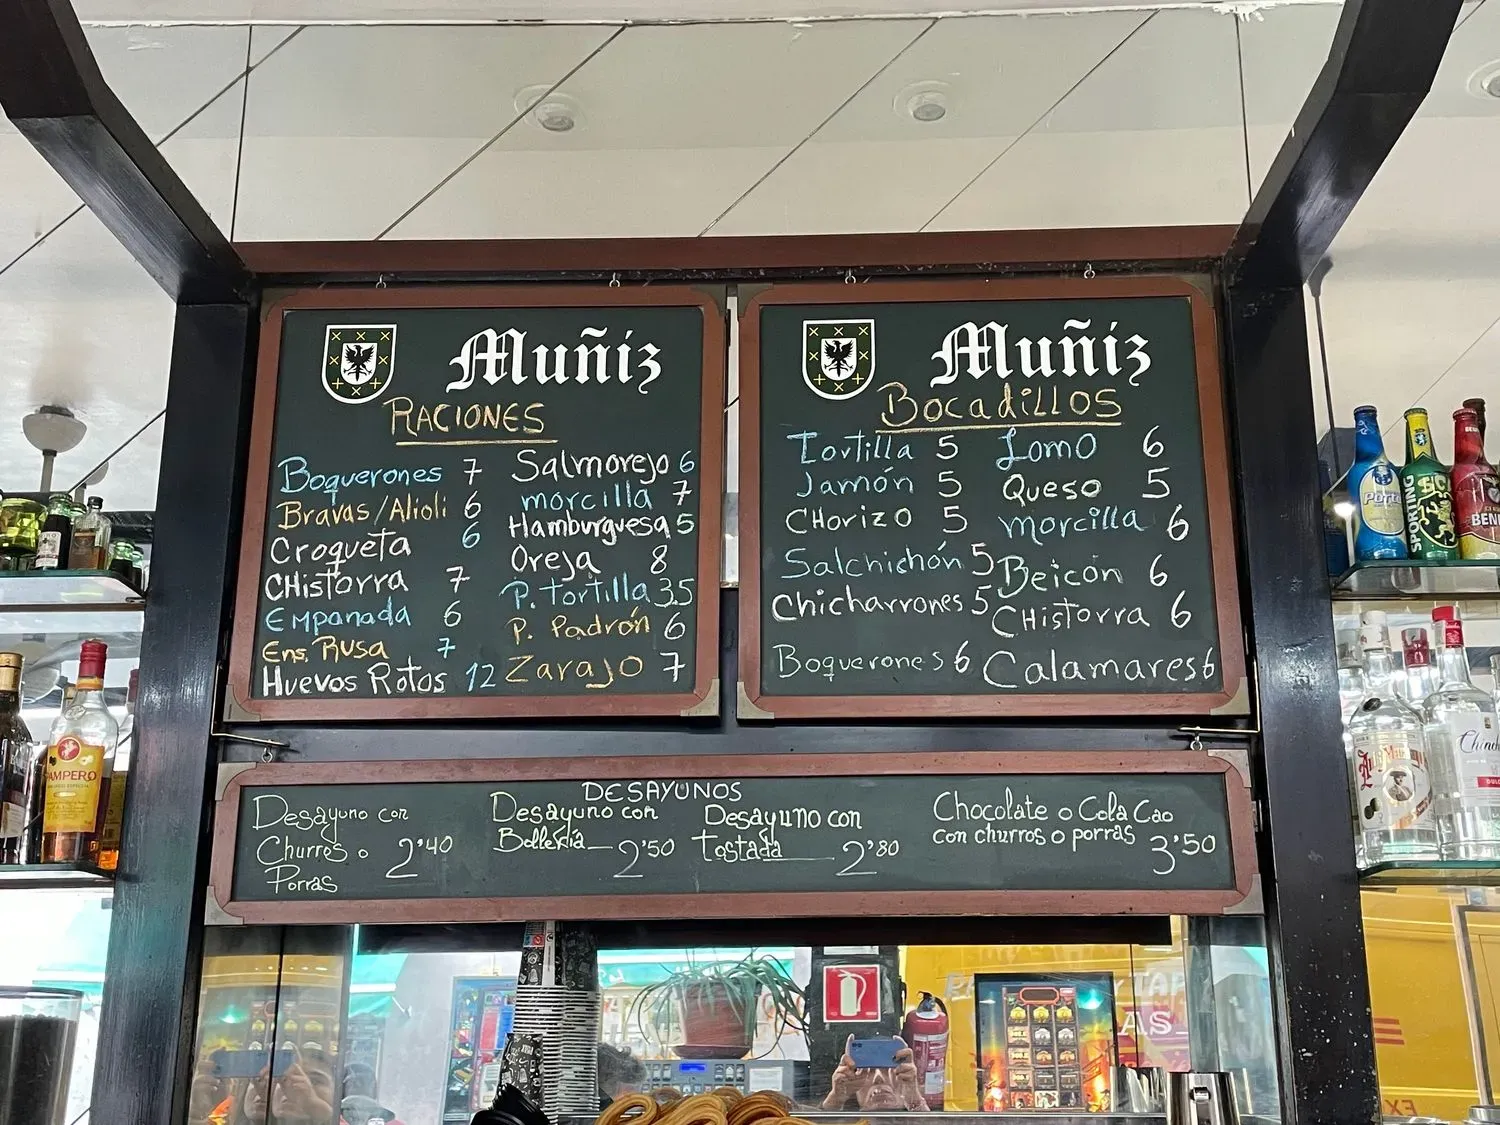 Muñiz
RACIONES
Boquerones 7
Bravas/Alioli 6
Croqueta 6
CHistorra 7
Empanada 6
Ens. Rusa 7
Huevos Rotos 12
Salmorejo 6
morcilla 7
Hamburguesa 5
Oreja 8
P. Tortilla 3,5
P. Padrón 6
Zarajo 7
Muñiz
BOCADILLOS
Tortilla 5
Jamón 5
CHorizo 5
Salchichón 5
Chicharrones 5
Boquerones 6
Lomo 6
Queso 5
morcilla 6
Beicón 6
CHistorra 6
Calamares 6
DESAYUNOS
Desayuno con
Churros o 2'40
Porras
Desayuno con
Bollería 2'50
Desayuno con
Tostada 2'80
Chocolate o Cola Cao
con churros o porras 3'50
PAMPERO
SPORTING